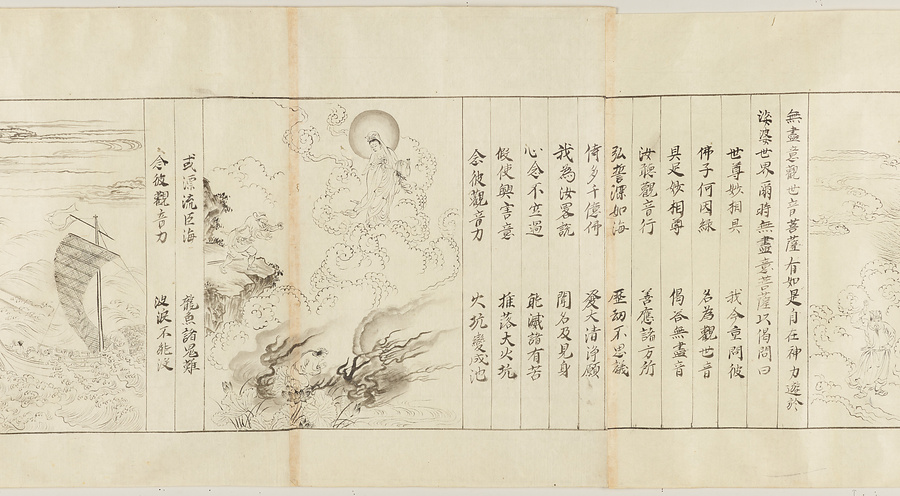 無盡意觀世音菩薩有如是自在神力遊於
娑婆世界爾時無盡意菩薩以偈問曰
世尊妙相具 我今重問彼
佛子何因緣 名為觀世音
具足妙相尊 偈答無盡意
汝聽觀音行 善應諸方所
弘誓深如海 歷劫不思議
侍多千億佛 發大清淨願
我為汝畧說 聞名及見身
心念不空過 能滅諸有苦
假使興害意 推落大火坑
念彼觀音力 火坑變成池
或漂流巨海 龍魚諸鬼難
念彼觀音力 波浪不能沒